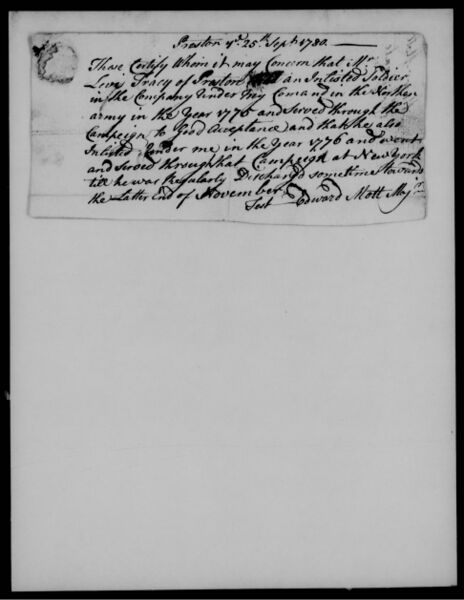 Preston yᵉ 25th Sept 1780
Thase Certify Whom it may Concern that Mr
Levi Tracy of Preston was an Inlisted Soldier
in the Company Under My Comand in the Northen
army in the Year 1775 and Served through the
Campaign to Good Acceptance and that he also
Inlisted Under me in the Year 1776 and went
and Served through that Campaign at New York
till he was Regularly Discharg'd sometime towards
the Latter End of November
Test Edward Mott Majr